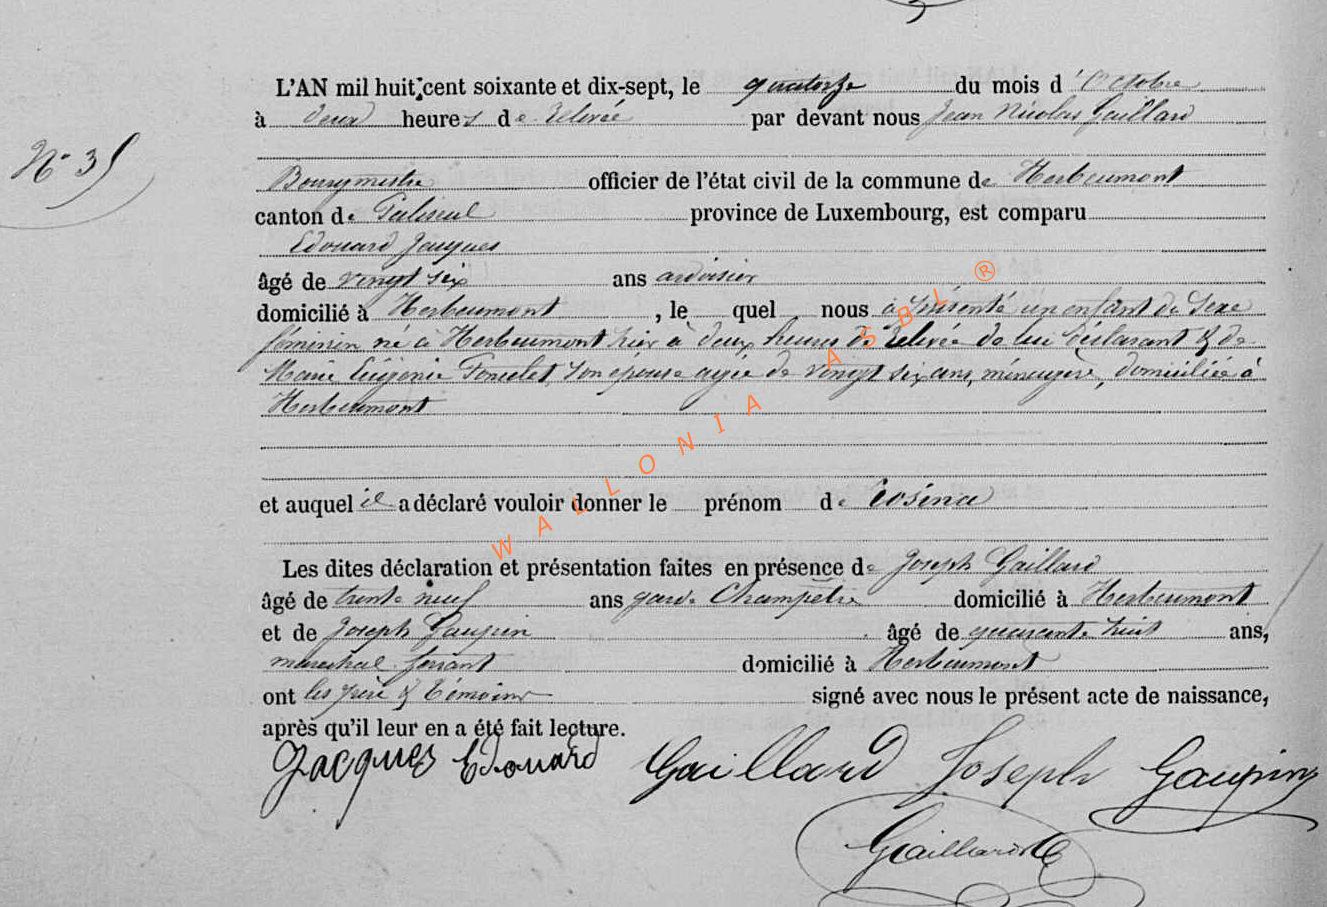 L'AN mil huit cent soixante et dix-sept, le quatorze du mois d'Octobre
à deux heures de relevée par devant nous Jean Nicolas Gaillard
N° 35
Bourgmestre officier de l'état civil de la commune de Herbeumont
canton de Paliseul province de Luxembourg, est comparu
Edouard Jacques
âgé de vingt six ans ardoisier
domicilié à Herbeumont, le quel nous a présenté un enfant du sexe
féminin né à Herbeumont hier à deux heures de relevée de lui déclarant & de
Marie Eugénie Poncelet, son épouse agée de vingt six ans, ménagère, domiciliée à
Herbeumont
et auquel il a déclaré vouloir donner le prénom de Rosina
Les dites déclaration et présentation faites en présence de Joseph Gaillard
âgé de trente neuf ans garde Champêtre domicilié à Herbeumont
et de Joseph Gaupin âgé de quarante huit ans,
maréchal ferrant domicilié à Herbeumont
ont les père & témoins signé avec nous le présent acte de naissance,
après qu'il leur en a été fait lecture.
Jacques Edouard Gaillard Joseph Gaupin
Gaillard
WALLONIA ASBL ®